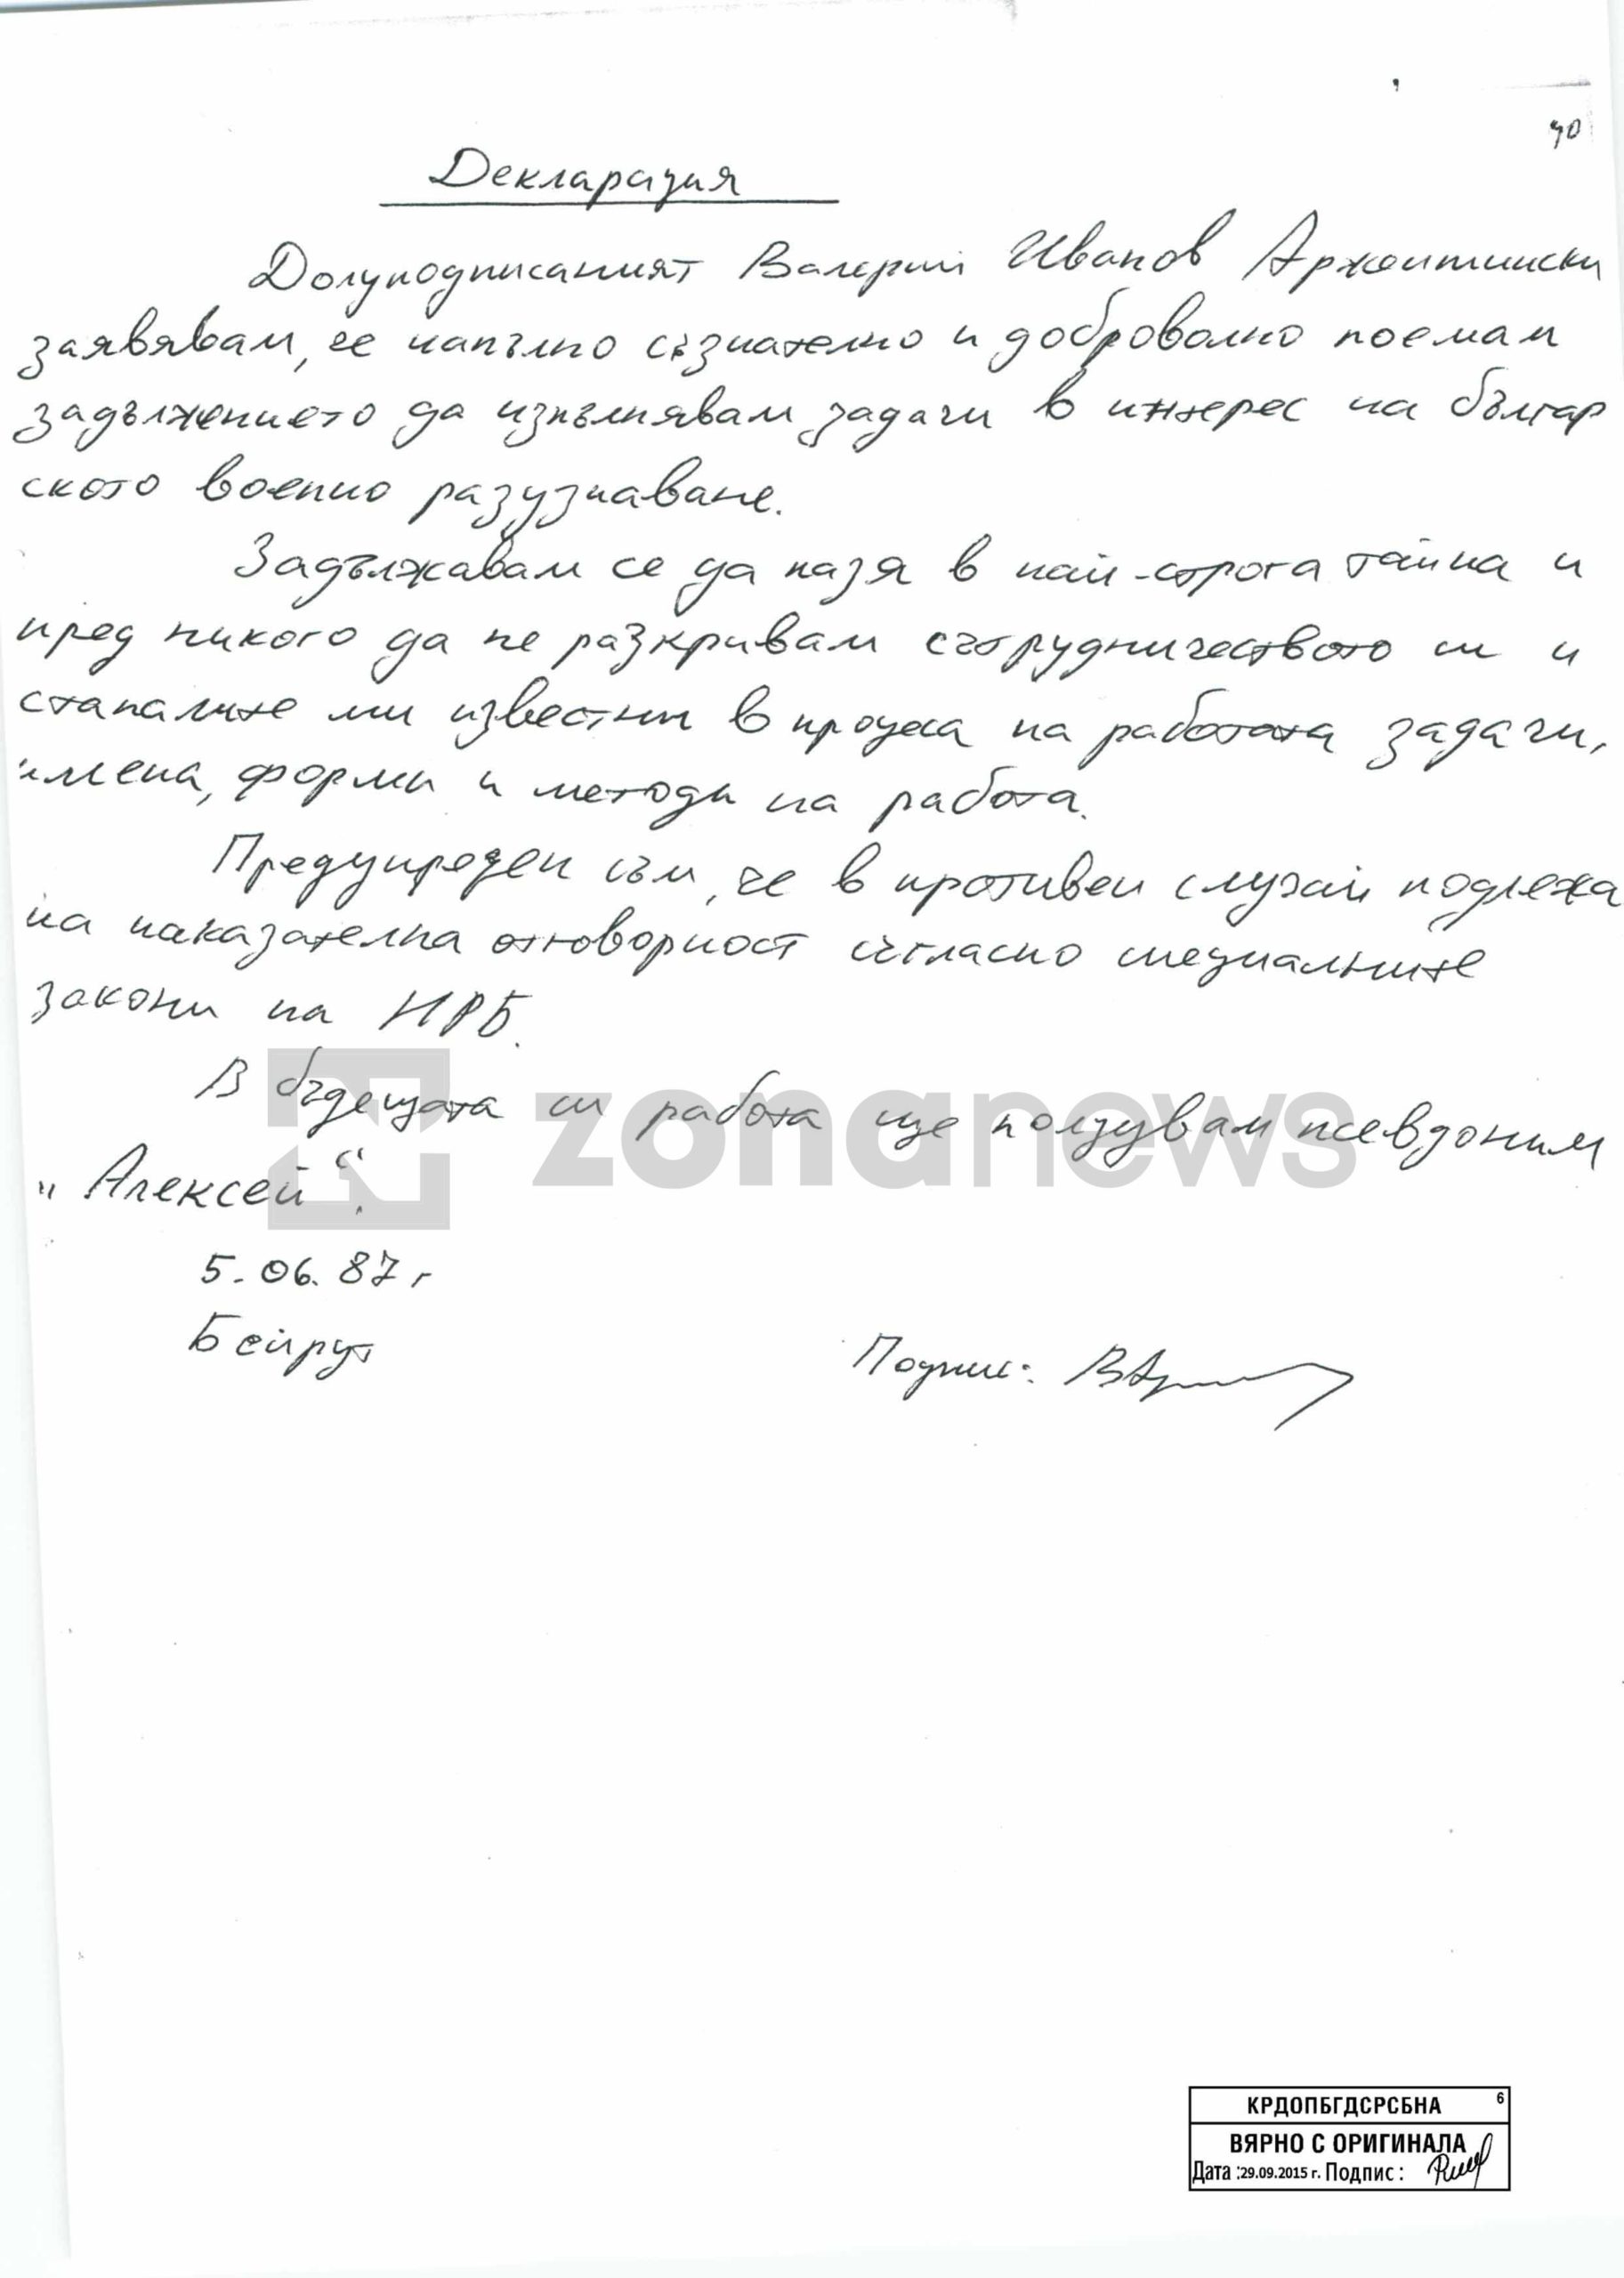 40
Декларация
Долуподписаният Валерий Иванов Аржентински
заявявам, че напълно съзнателно и доброволно поемам
задължението да изпълнявам задачи в интерес на българ
ското военно разузнаване.
Задължавам се да пазя в най-строга тайна и
пред никого да не разкривам сътрудничеството си и
станалите ми известни в процеса на работата задачи,
имена, форми и методи на работа.
Предупреден съм, че в противен случай подлежа
на наказателна отговорност съгласно специалните
закони на НРБ.
В бъдещата си работа ще ползувам псевдоним
„Алексей“.
zonanews
5.06.87 г
Бейрут
Подпис:
КРДОПБГДСРСБНА 6
ВЯРНО С ОРИГИНАЛА
Дата :29.09.2015 г. Подпис :